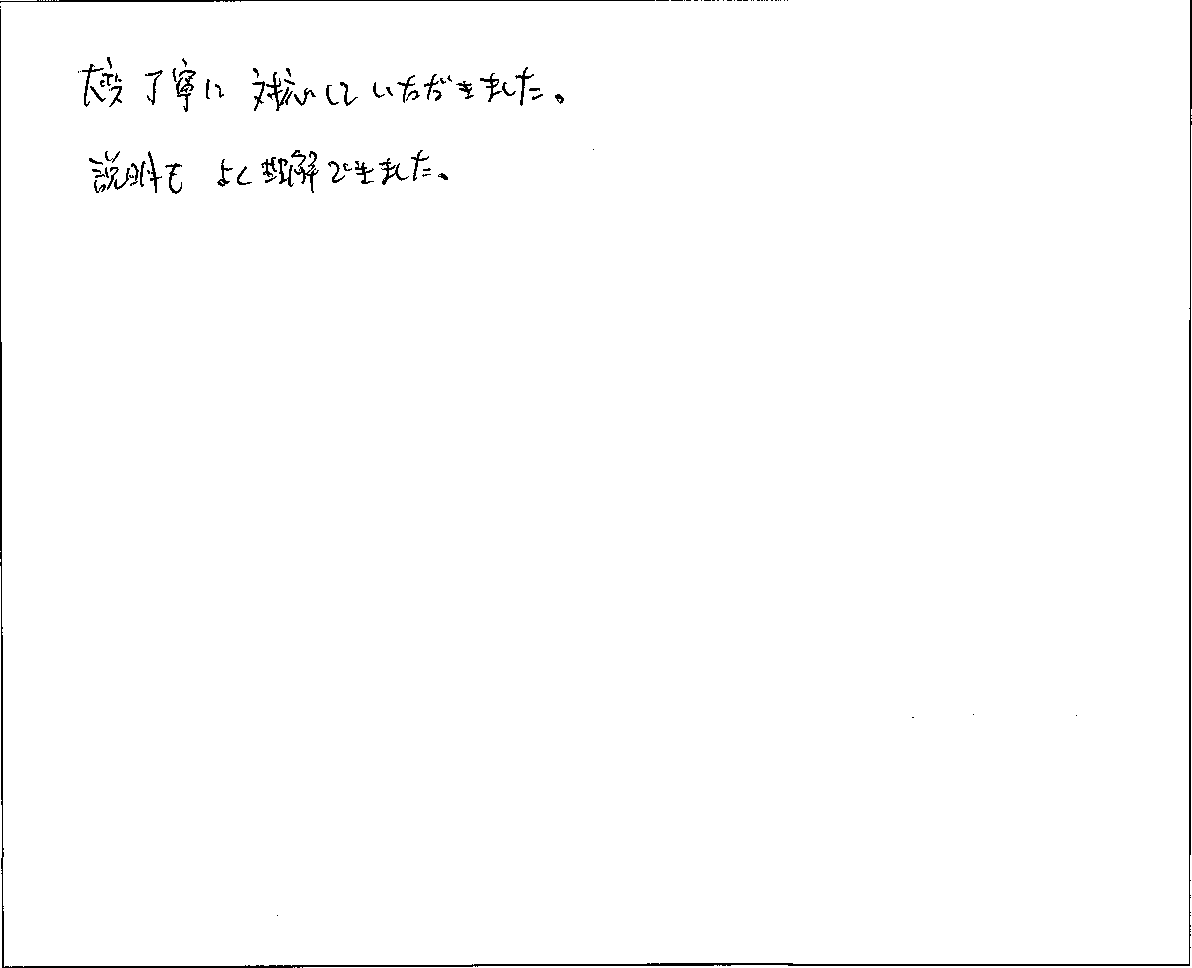 大変丁寧に対応していただきました。
説明もよく理解できました。